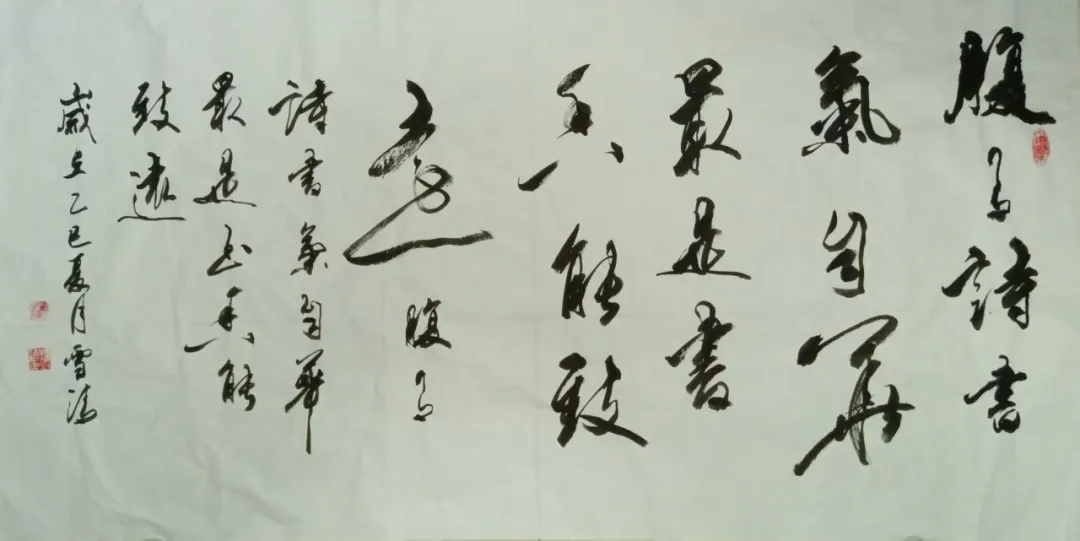 腹有詩書
氣自華
最是書
香能致
遠腹有
詩書氣自華
最是書香能
致遠
歲在乙巳夏月雪